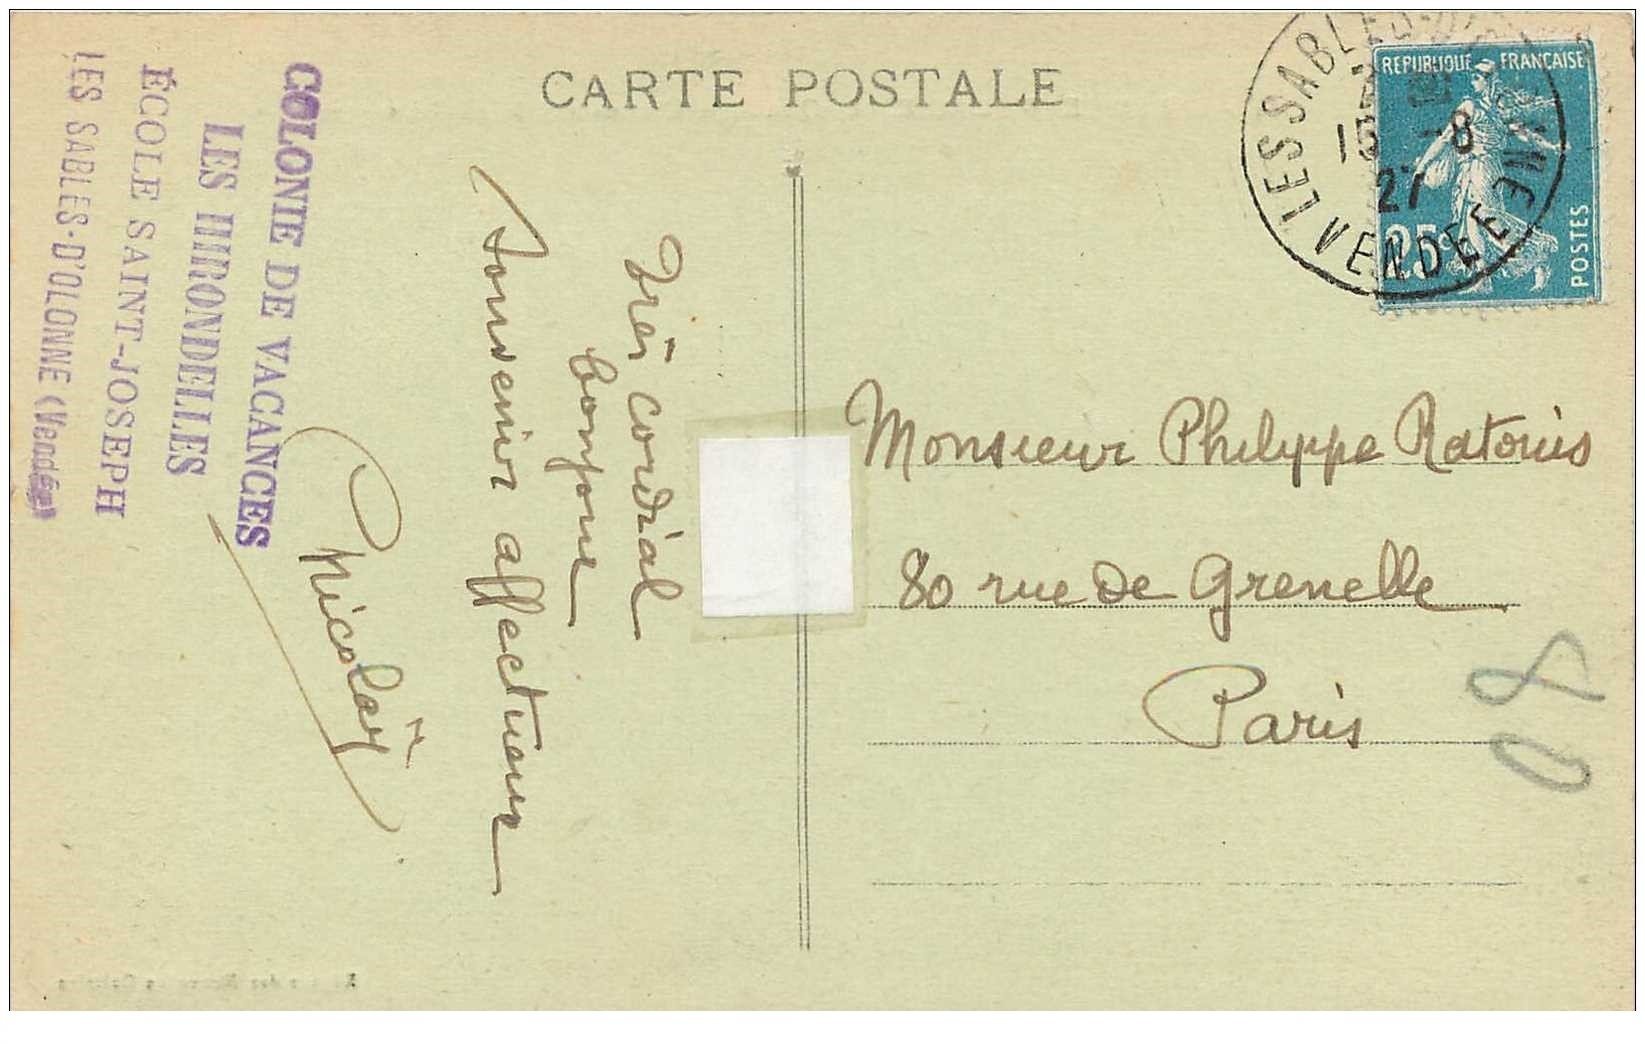 CARTE POSTALE
COLONIE DE VACANCES
LES HIRONDELLES
ÉCOLE SAINT-JOSEPH
LES SABLES-D'OLONNE (Vendée)
Très cordial
bonjour
Souvenir affectueux
Nicolaÿ
REPUBLIQUE FRANÇAISE
25c
POSTES
LES SABLES-D'OLONNE
15 - 8
27
VENDEE
Monsieur Philippe Ratoris
80 rue de Grenelle
Paris
08